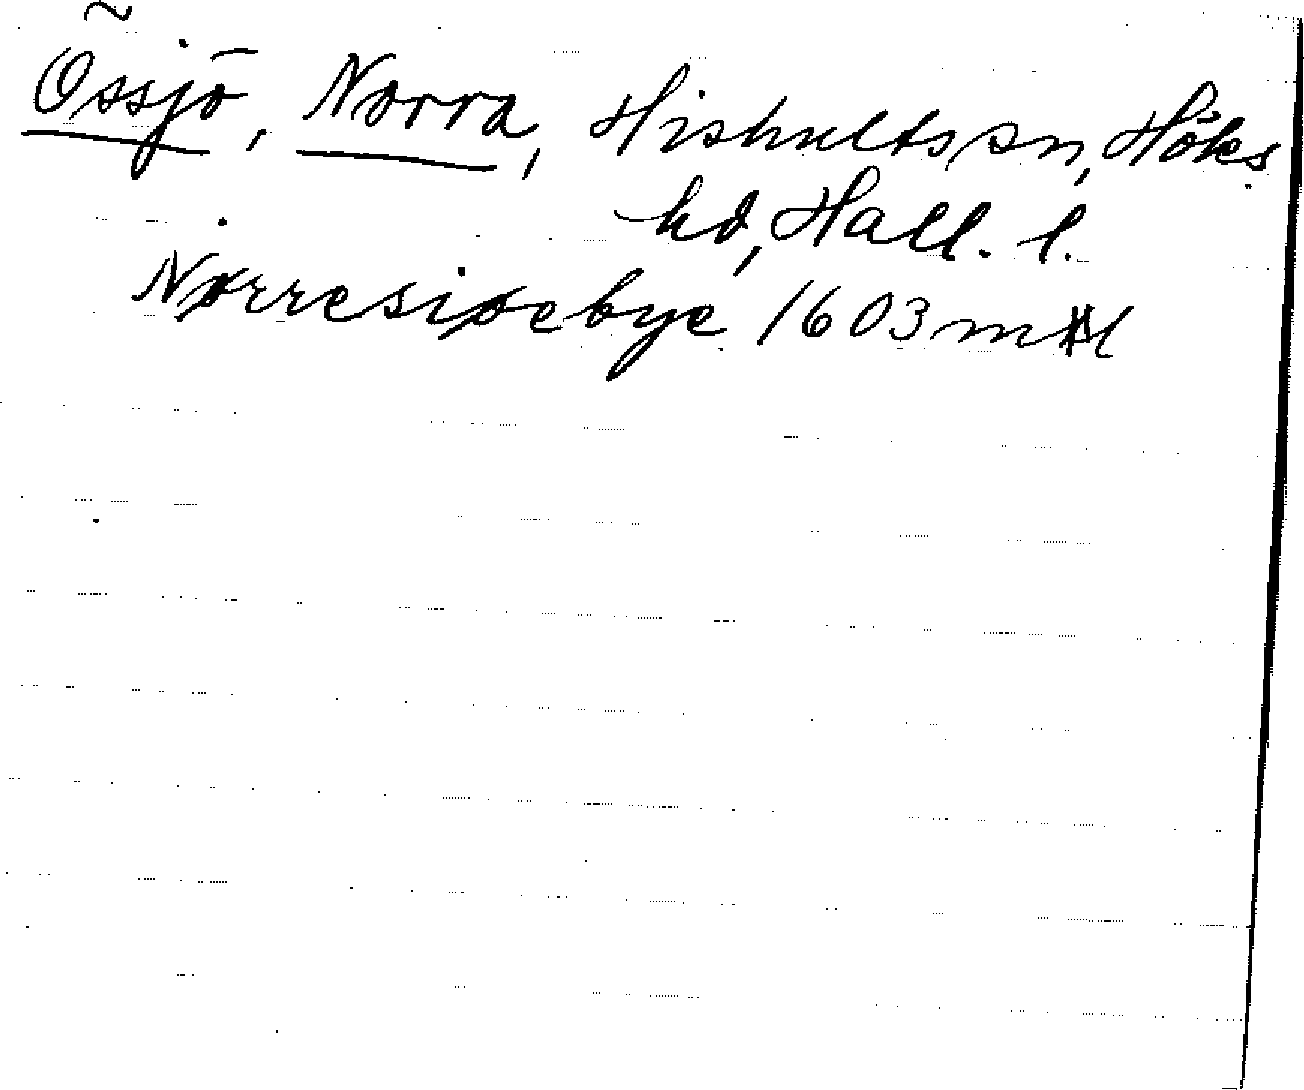 Össjö, Norra, Hishults sn, Höks
hd, Hall. l.
Nørresiøebye 1603